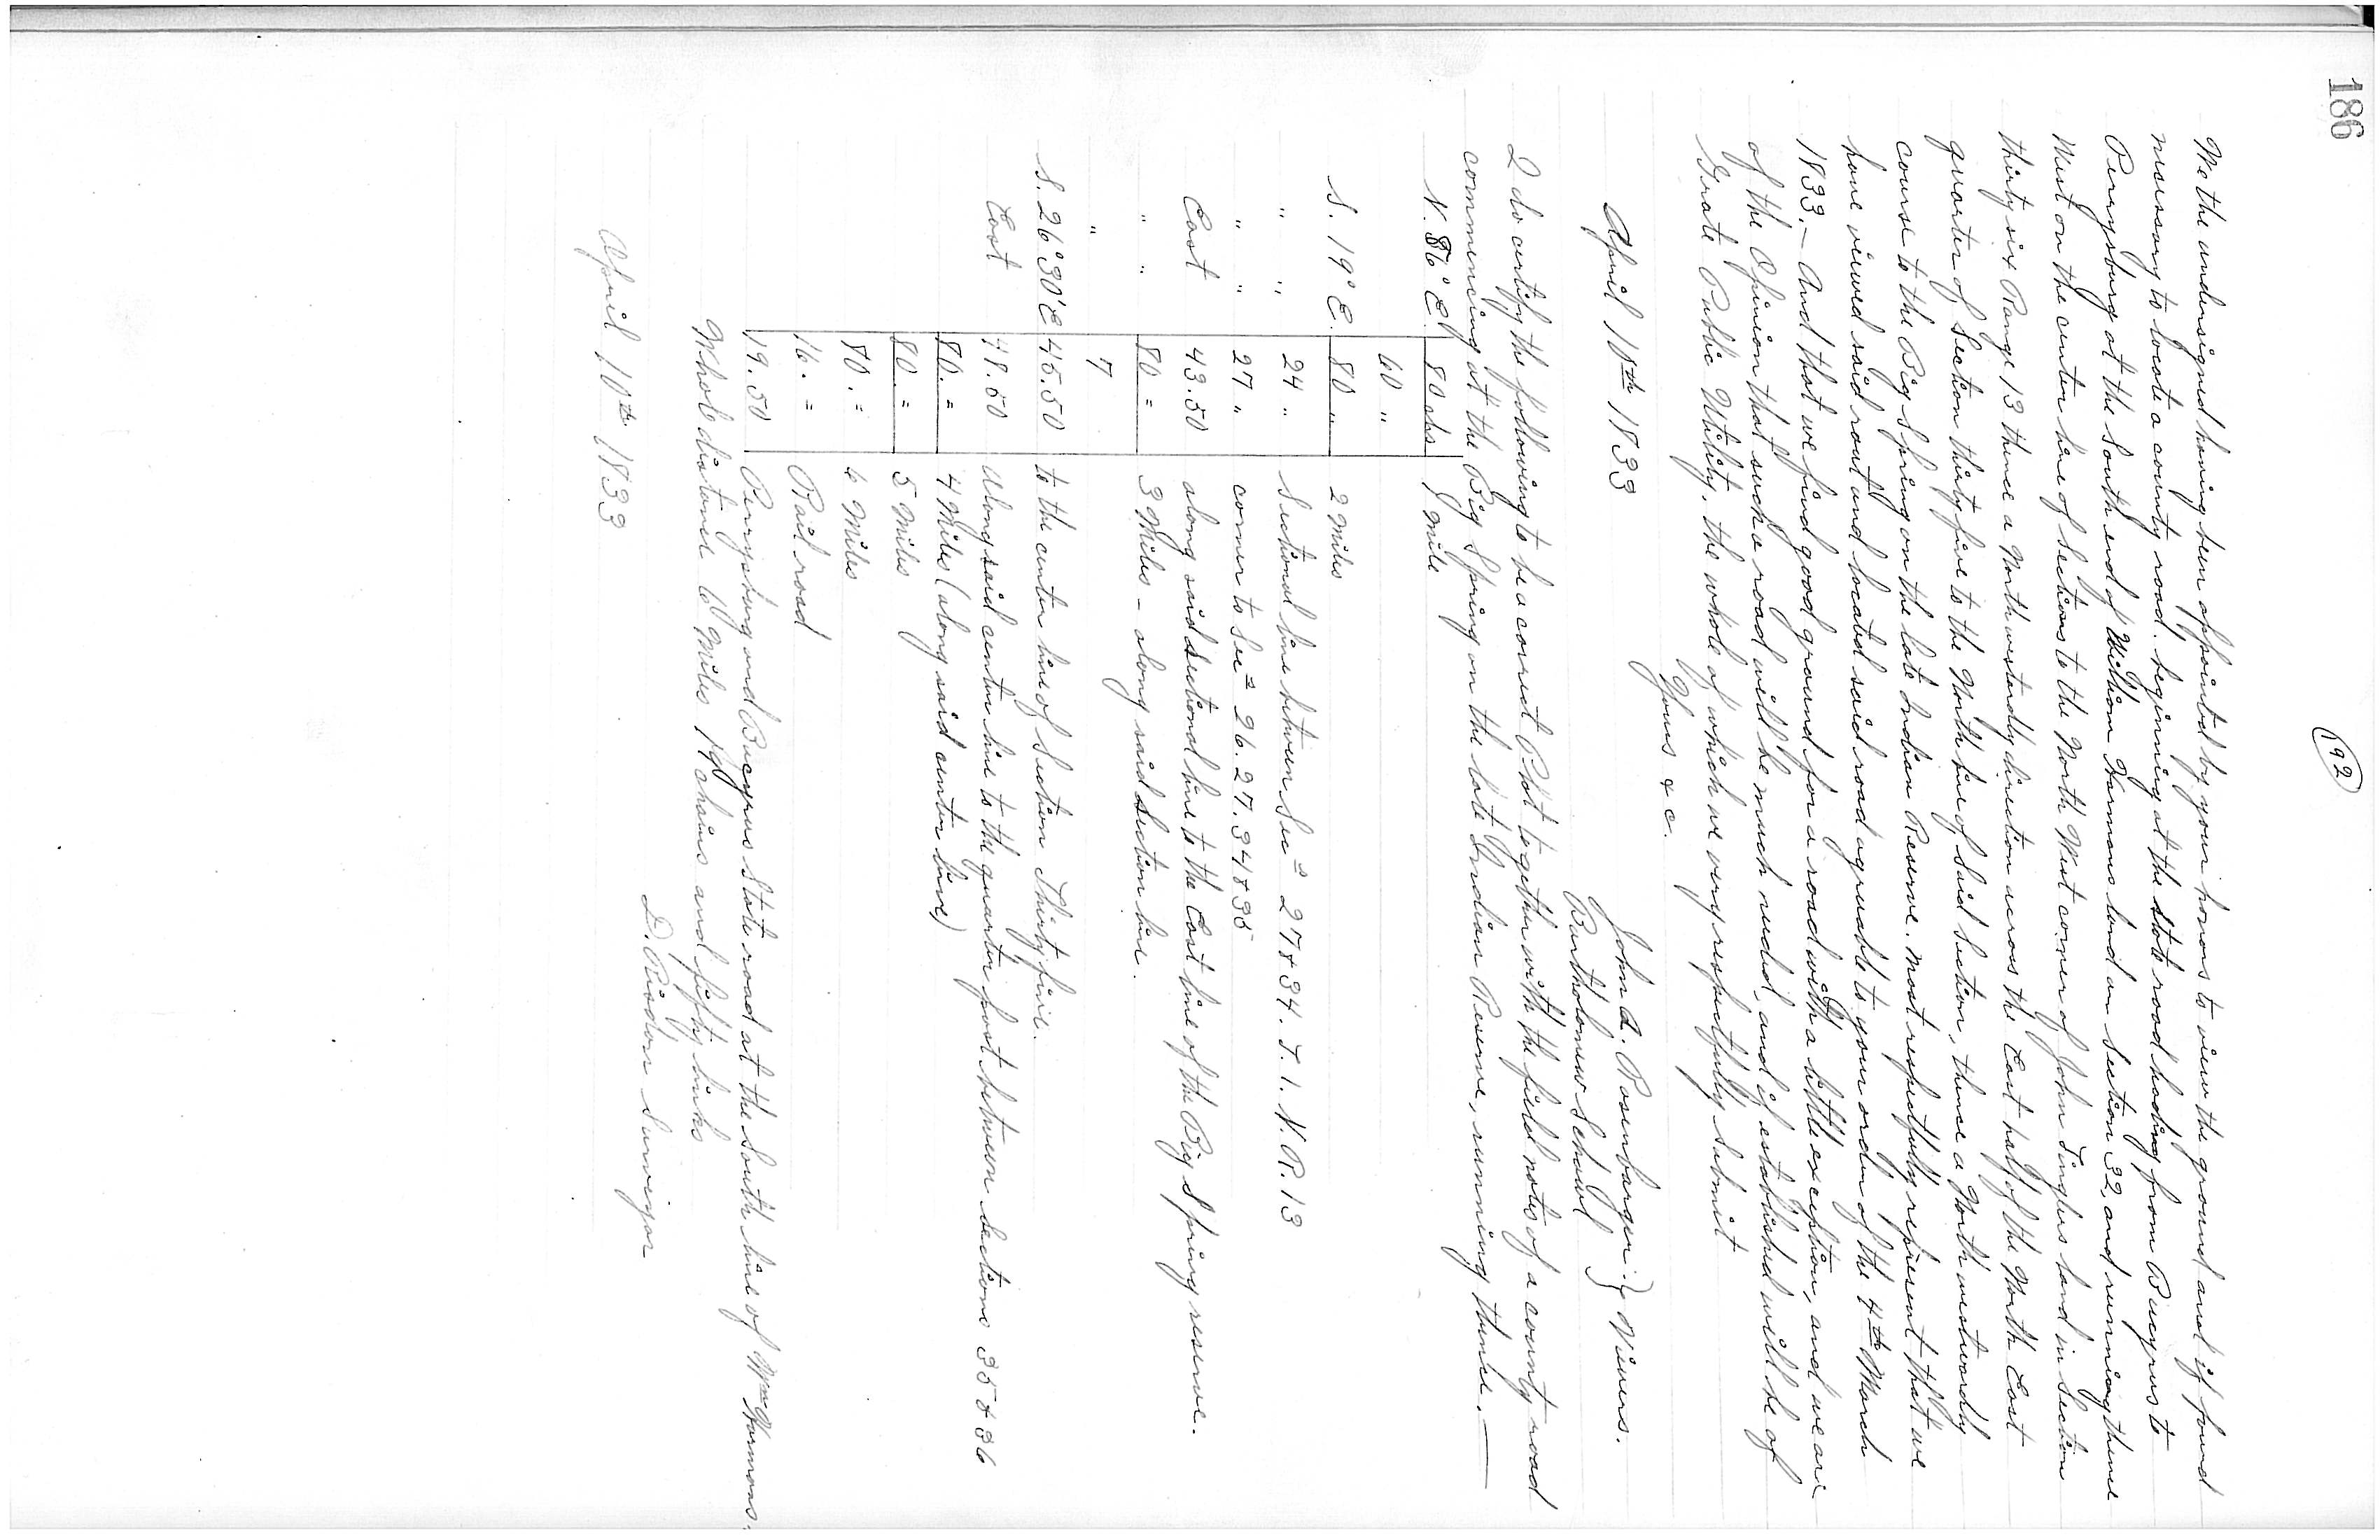 186
92
We the undersigned having been appointed by your honors to view the ground and if found
necessary to locate a county road. beginning at the state road leading from Bucyrus to
Perrysburg at the South end of William Harmons land in Section 32, and running thence
West on the center line of Sections to the North West corner of John Singlers land in Section
thirty six Range 13 thence a Northwesterdly direction across the East half of the North East
quarter of Section thirty five to the North line of Said Section, thence a North westwardly
course to the Big Spring on the late Indian Reserve. Most respectfully represent that we
have viewed said rout and located said road agreeable to your order of the 4th March
1833. — And that we find good ground for a road with a little exception, and we are
of the Opinion that such a road will be much needed, and if established will be of
Grate Public Utility. the whole of which we very respectfully Submit
Yours &c.
April 10th 1833
John A. Rosenbarger } Viewers.
Bartholomew Schaul
I do certify the following to be a correct Plot together with the field notes of a county road
commencing at the Big Spring on the late Indian Reserve, running thence. —
N. 86° E. 80 chs 1 Mile
60 "
S. 19° E. 80 " 2 Miles
" " 24 " Sectional line between Sec= 27 & 34. T. 1. N. R. 13
" " 27 " corner to Sec= 26. 27. 34 & 35
East 43.50 along said Sectional line to the East line of the Big Spring reserve.
" " 80 = 3 Miles - along said Section line.
" 7
S. 26° 30' E 45.50 to the center line of Section Thirty five.
East 48.50 Along said center line to the quarter post between Sections 35 & 36
80. = 4 Miles (along said center line)
80. = 5 Miles
80. = 6 Miles
16. = Rail road
19.50 Perrysburg and Bucyrus State road at the South line of Wm Harmons.
Whole distance 6 Miles 19 chains and fifty links
D. Risdon Surveyor
April 10th 1833